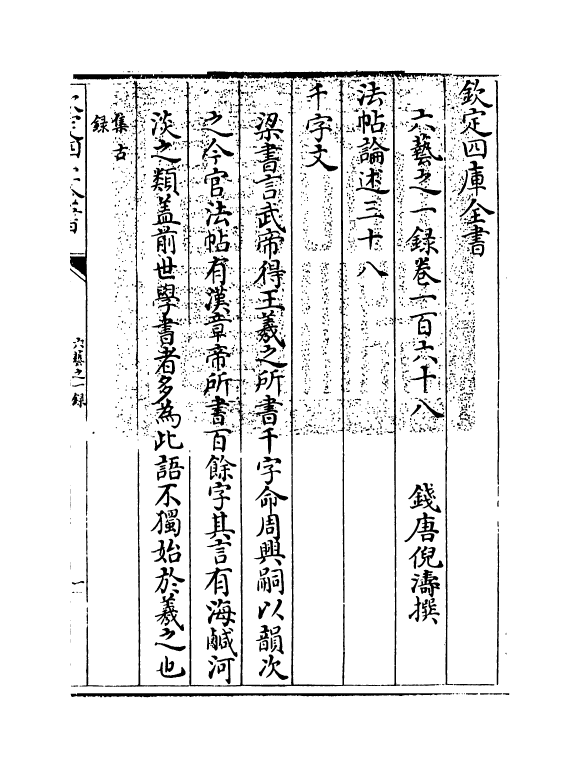 欽定四庫全書
六藝之一錄卷二百六十八
錢唐倪濤撰
法帖論述三十八
千字文
梁書言武帝得王羲之所書千字命周興嗣以韻次
之今官法帖有漢章帝所書百餘字其言有海鹹河
淡之類蓋前世學書者多為此語不獨始於羲之也
集古
錄
欽定四庫全書
六藝之一錄
一